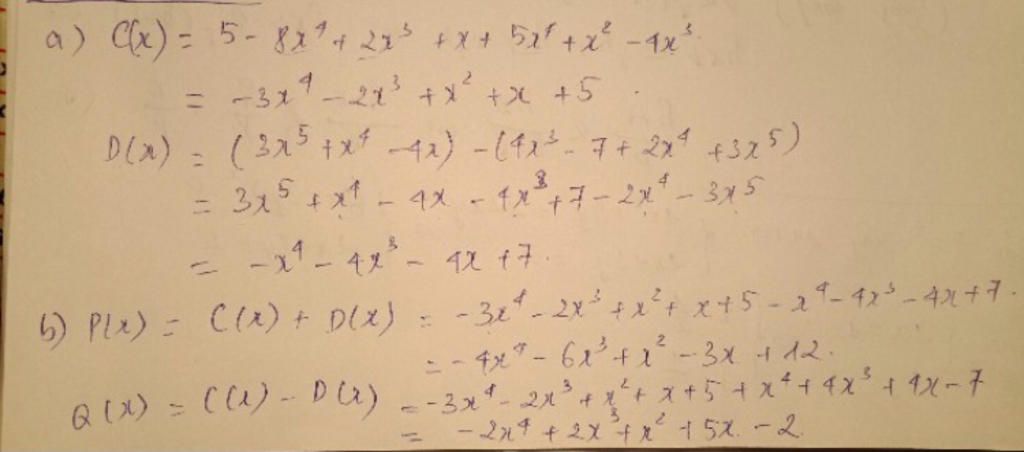 a) C(x) = 5 - 8x⁴ + 2x³ + x + 5x⁴ + x² - 4x³.
= -3x⁴ - 2x³ + x² + x + 5.
D(x) = (3x⁵ + x⁴ - 4x) - (4x³ - 7 + 2x⁴ + 3x⁵)
= 3x⁵ + x⁴ - 4x - 4x³ + 7 - 2x⁴ - 3x⁵
= -x⁴ - 4x³ - 4x + 7.
b) P(x) = C(x) + D(x) = -3x⁴ - 2x³ + x² + x + 5 - x⁴ - 4x³ - 4x + 7.
= -4x⁴ - 6x³ + x² - 3x + 12.
Q(x) = C(x) - D(x) = -3x⁴ - 2x³ + x² + x + 5 + x⁴ + 4x³ + 4x - 7
= -2x⁴ + 2x³ + x² + 5x - 2.